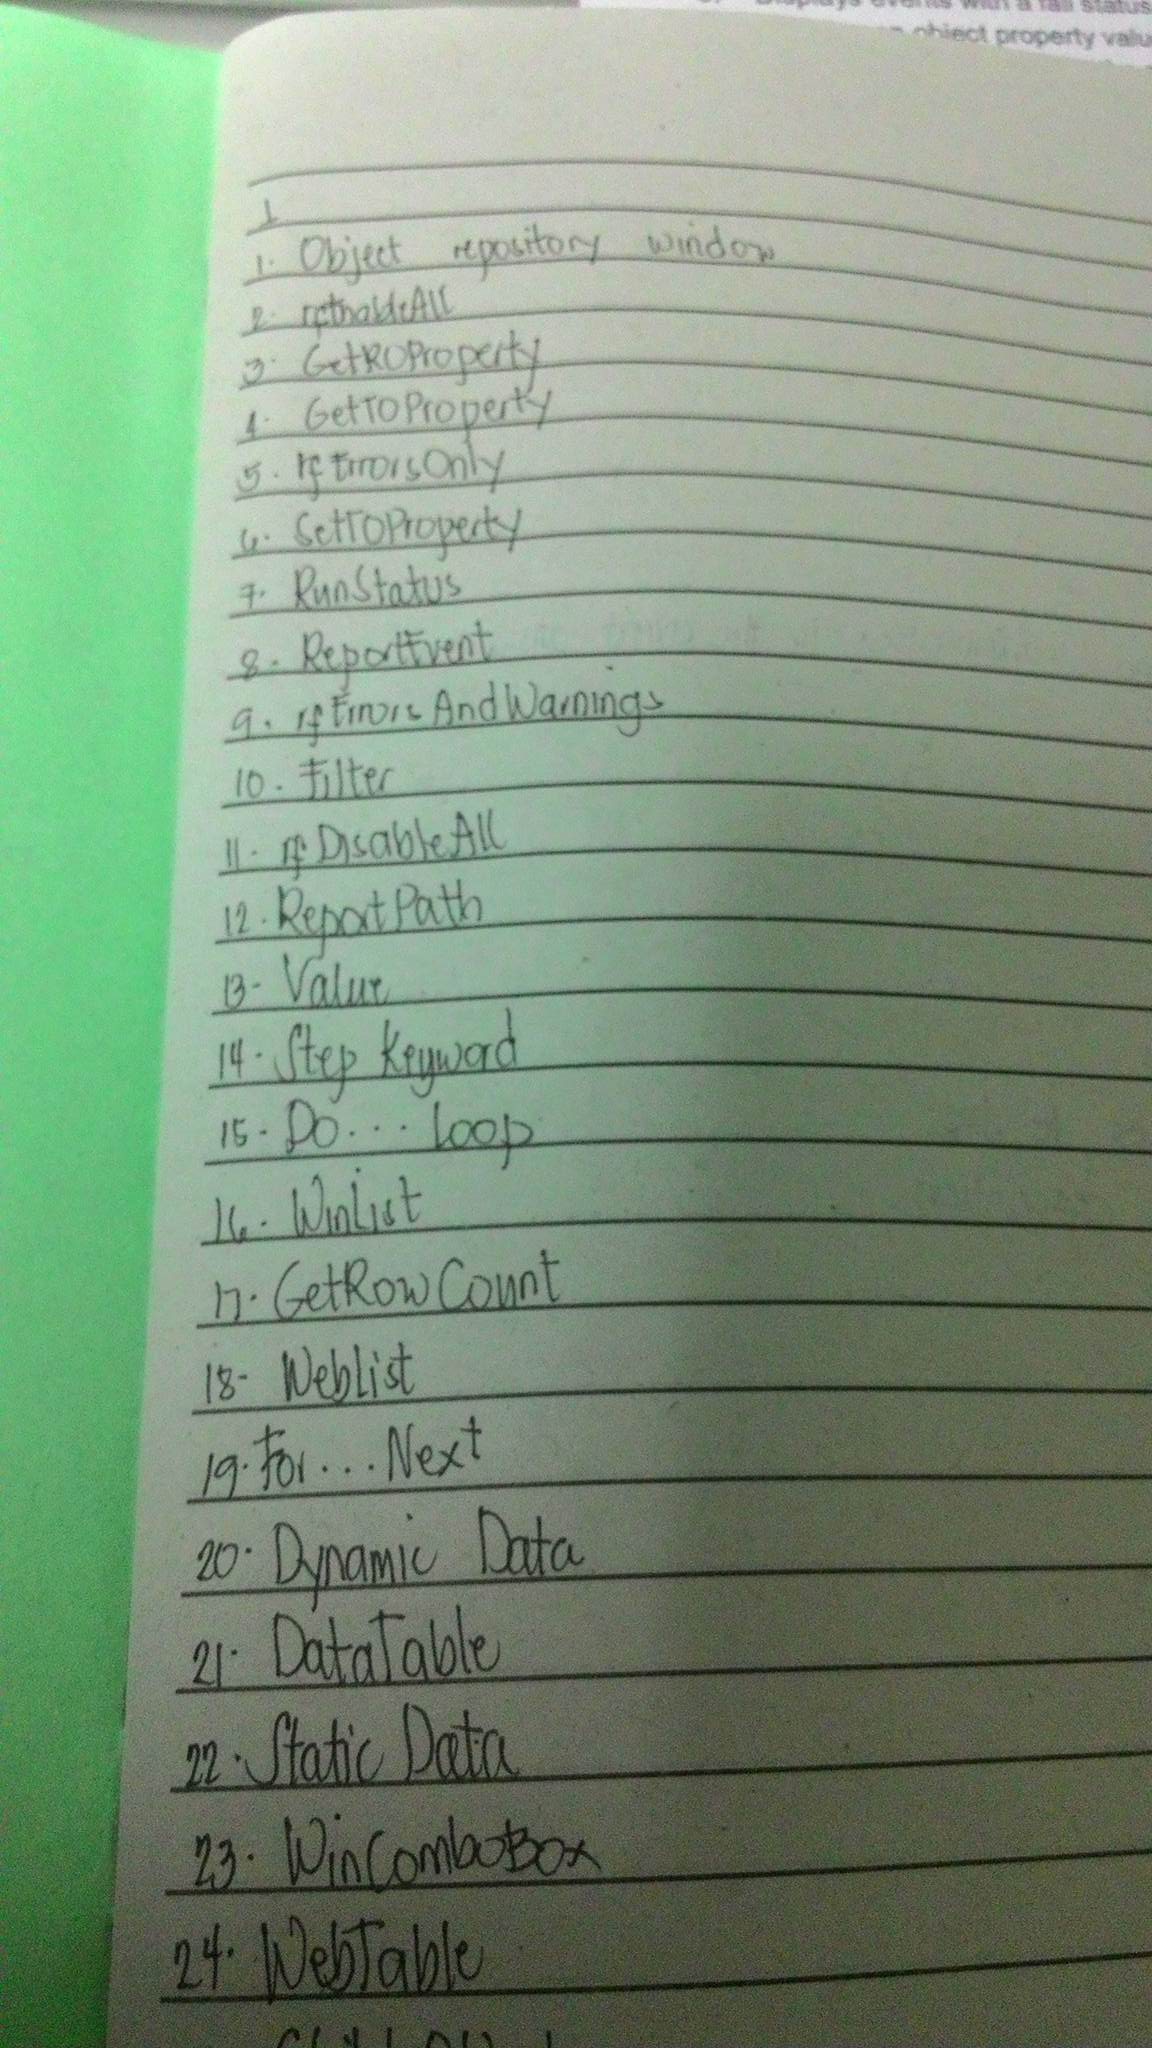 Displays events with a fail status
object property valu
I
1. Object repository window
2. rfEnableAll
3. GetROProperty
4. GetTOProperty
5. rfErrorsOnly
6. SetTOProperty
7. RunStatus
8. ReportEvent
9. rfErrorsAndWarnings
10. Filter
11. rfDisableAll
12. ReportPath
13. Value
14. Step Keyword
15. Do... Loop
16. WinList
17. GetRowCount
18. WebList
19. For... Next
20. Dynamic Data
21. DataTable
22. Static Data
23. WinComboBox
24. WebTable